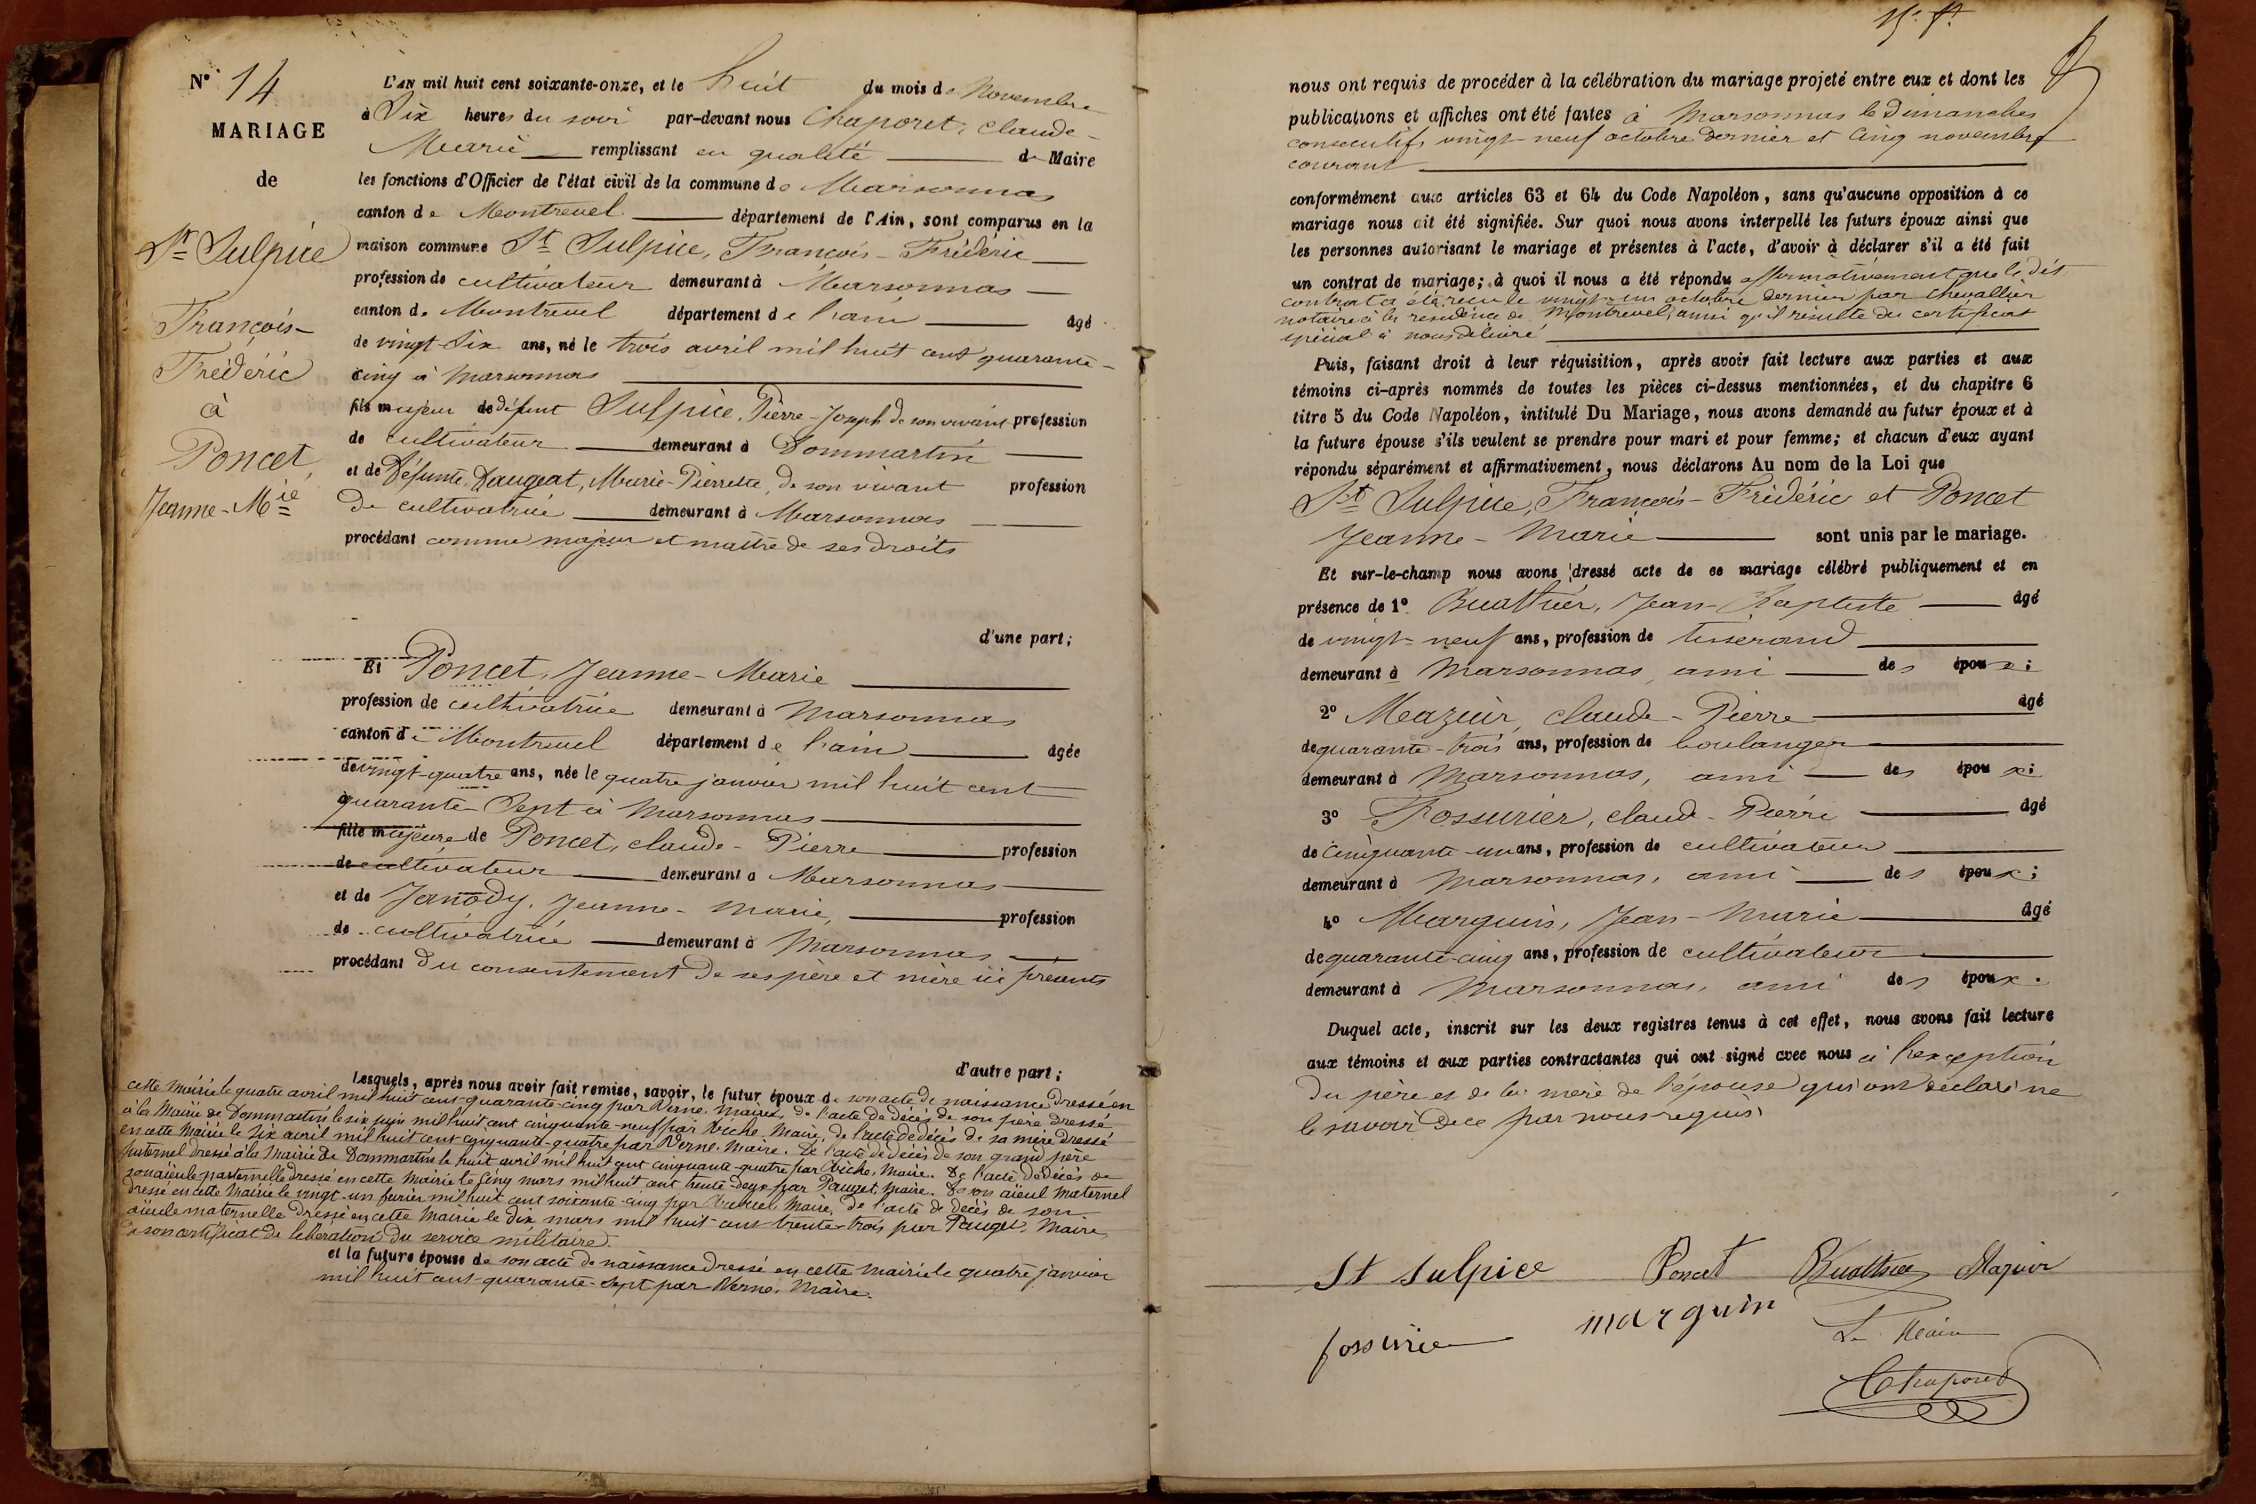 N° 14
MARIAGE
de
St Sulpice
François-
Frédéric
à
Poncet,
Jeanne-Mie
L'AN mil huit cent soixante-onze, et le huit du mois de Novembre
à Six heures du soir par-devant nous Chaporet, Claude-
Marie remplissant en qualité de Maire
les fonctions d'Officier de l'état civil de la commune de Marsonnas
canton de Montrevel département de l'Ain, sont comparus en la
maison commune St Sulpice, François-Frédéric
profession de cultivateur demeurant à Marsonnas
canton de Montrevel département de l'ain âgé
de vingt Six ans, né le trois avril mil huit cent quarante-
cinq à Marsonnas
fils majeur de défunt Sulpice, Pierre-Joseph de son vivant profession
de cultivateur demeurant à Dommartin
et de Défunte, Daugeat, Marie-Pierrette, de son vivant profession
de cultivatrice demeurant à Marsonnas
procédant comme majeur et maître de ses droits
d'une part;
Et Poncet, Jeanne-Marie
profession de cultivatrice demeurant à Marsonnas
canton de Montrevel département de l'ain âgée
de vingt-quatre ans, née le quatre janvier mil huit cent
quarante-Sept à Marsonnas
fille majeure de Poncet, claude-Pierre profession
de cultivateur demeurant à Marsonnas
et de Janody, Jeanne-Marie, profession
de cultivatrice demeurant à Marsonnas
procédant du consentement de ses père et mère ici présents
d'autre part;
Lesquels, après nous avoir fait remise, savoir, le futur époux de son acte de naissance dressé en
cette mairie le quatre avril mil huit cent quarante-cinq par Verne, Maire, de l'acte de décès de son père dressé
à la Mairie de Dommartin le six juin mil huit cent cinquante-neuf par Viche, Maire, de l'acte de décès de sa mère dressé
en cette Mairie le Six avril mil huit cent cinquante-quatre par Verne, Maire. De l'acte de décès de son grand père
paternel dressé à la Mairie de Dommartin le huit avril mil huit cent cinquante-quatre par Viche, Maire. De l'acte de décès de
son aïeule paternelle dressé en cette Mairie le Cinq mars mil huit cent trente-deux par Pauget, Maire. De son aïeul maternel
dressé en cette Mairie le vingt-un fevrier mil huit cent soixante-cinq par Maire, de l'acte de décès de son
aïeule maternelle dressé en cette Mairie le Dix mars mil huit-cent-trente-trois par Pauget, Maire,
De son certificat de libération du service militaire.
et la future épouse de son acte de naissance dressé en cette mairie le quatre janvier
mil huit cent quarante-Sept par Verne, Maire.
nous ont requis de procéder à la célébration du mariage projeté entre eux et dont les
publications et affiches ont été faites à Marsonnas le Dimanches
consecutifs vingt-neuf octobre dernier et Cinq novembre
courant
conformément aux articles 63 et 64 du Code Napoléon, sans qu'aucune opposition à ce
mariage nous ait été signifiée. Sur quoi nous avons interpellé les futurs époux ainsi que
les personnes autorisant le mariage et présentes à l'acte, d'avoir à déclarer s'il a été fait
un contrat de mariage; à quoi il nous a été répondu affirmativement que le dit
contrat a été reçu le vingt-un octobre dernier par Chevallier
notaire à la résidence de Montrevel, ainsi qu'il résulte du certificat
spécial à nous délivré
Puis, faisant droit à leur réquisition, après avoir fait lecture aux parties et aux
témoins ci-après nommés de toutes les pièces ci-dessus mentionnées, et du chapitre 6
titre 5 du Code Napoléon, intitulé Du Mariage, nous avons demandé au futur époux et à
la future épouse s'ils veulent se prendre pour mari et pour femme; et chacun d'eux ayant
répondu séparément et affirmativement, nous déclarons Au nom de la Loi que
St Sulpice, François-Frédéric et Poncet
Jeanne-Marie sont unis par le mariage.
Et sur-le-champ nous avons dressé acte de ce mariage célébré publiquement et en
présence de 1° Buathier, Jean-Baptiste âgé
de vingt-neuf ans, profession de tisserand
demeurant à Marsonnas, ami des époux;
2° Mazuir, claude-Pierre âgé
de quarante-trois ans, profession de boulanger
demeurant à Marsonnas, ami des époux;
3° Fossurier, claude-Pierre âgé
de cinquante-un ans, profession de cultivateur
demeurant à Marsonnas, ami des époux;
4° Marguin, Jean-Marie âgé
de quarante-cinq ans, profession de cultivateur
demeurant à Marsonnas, ami des époux.
Duquel acte, inscrit sur les deux registres tenus à cet effet, nous avons fait lecture
aux témoins et aux parties contractantes qui ont signé avec nous à l'exception
du père et de la mère de l'épouse qui ont déclaré ne
le savoir de ce par nous requis
St Sulpice Poncet Buathier Mazuir
fossurier marguin Le Maire
Chaporet